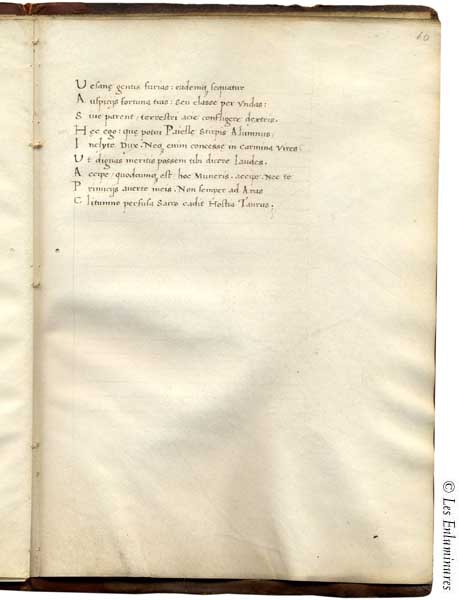 60
Vesane gentis furias: eademq; sequatur
Auspicijs fortuna tuis: seu classe per vndas:
Siue parent: terrestri acie confligere dextris.
Hec ego: que potui Stirpis Alumnus:
Inclyte Dux. Neq; enim concesse in carmina vires:
Vt dignas meritis possem tibi dicere laudes.
Accipe: quodcunq; est hoc Muneris. accipe. Nec te
Principijs auerte meis. Non semper ad Aras
Clitumno perfusa Sacro cadit Hostia Taurus.
© Les Enluminures